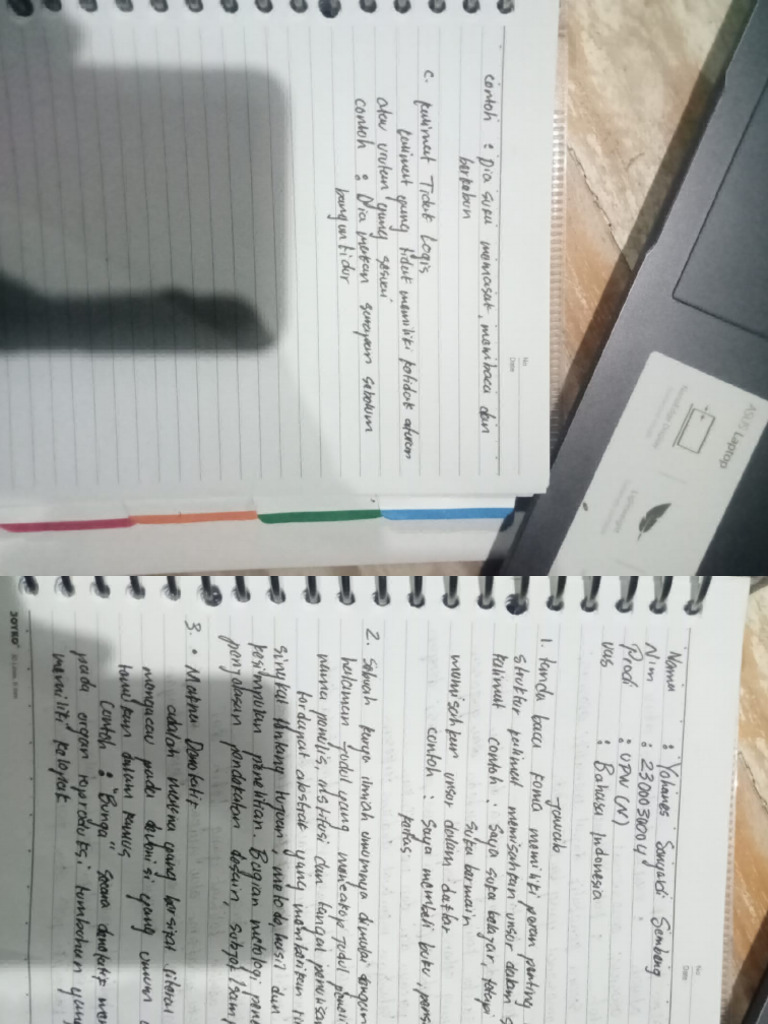 contoh : Dia suka memasak, membaca dan
berkebun
c. kalimat Tidak Logis
kalimat yang tidak memiliki aturan
atau urutan yang sesuai
contoh : Dia makan sarapan sebelum
bangun tidur
No
Date
ASUS Laptop
No
Date
Nama :
Nim : 2300030004
Prodi : UPW (N)
UAS : Bahasa Indonesia
Jawab
1. tanda baca koma memiliki peran penting
struktur kalimat memisahkan unsur dalam
kalimat contoh : Saya suka belajar, tetapi
suka bermain
memisahkan unsur dalam daftar
contoh : Saya membeli buku,
kertas
2. Sebuah karya ilmiah umumnya dimulai dengan
halaman judul yang mencakup judul
nama penulis, institusi dan tanggal
terdapat abstrak yang memberikan
singkat tentang tujuan, metode, hasil dan
kesimpulan penelitian. Bagian metologi
penjelasan pendekatan desain, subjek
3. • Makna Denotatif
adalah makna yang bersifat literal
mengacu pada definisi yang umum
temukan dalam kamus
Contoh : "Bunga" Secara denotatif
pada organ reproduksi tumbuhan yang
memiliki kelopak
JOYKO